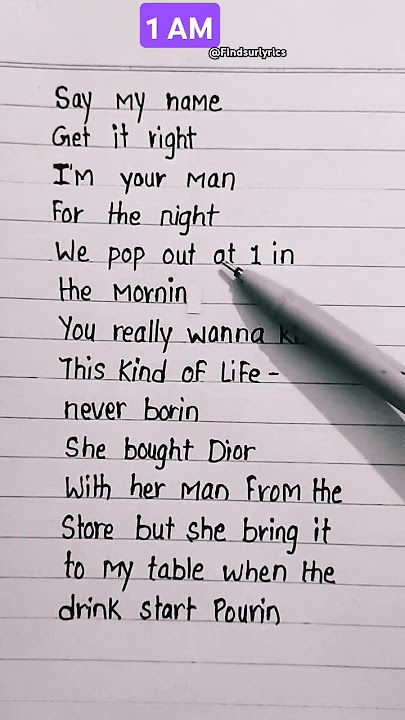 1 AM
@Findsurlyrics
Say my name
Get it right
I'm your man
For the night
We pop out at 1 in
the Mornin
You really wanna
This kind of life -
never borin
She bought Dior
With her man from the
Store but she bring it
to my table when the
drink start Pourin